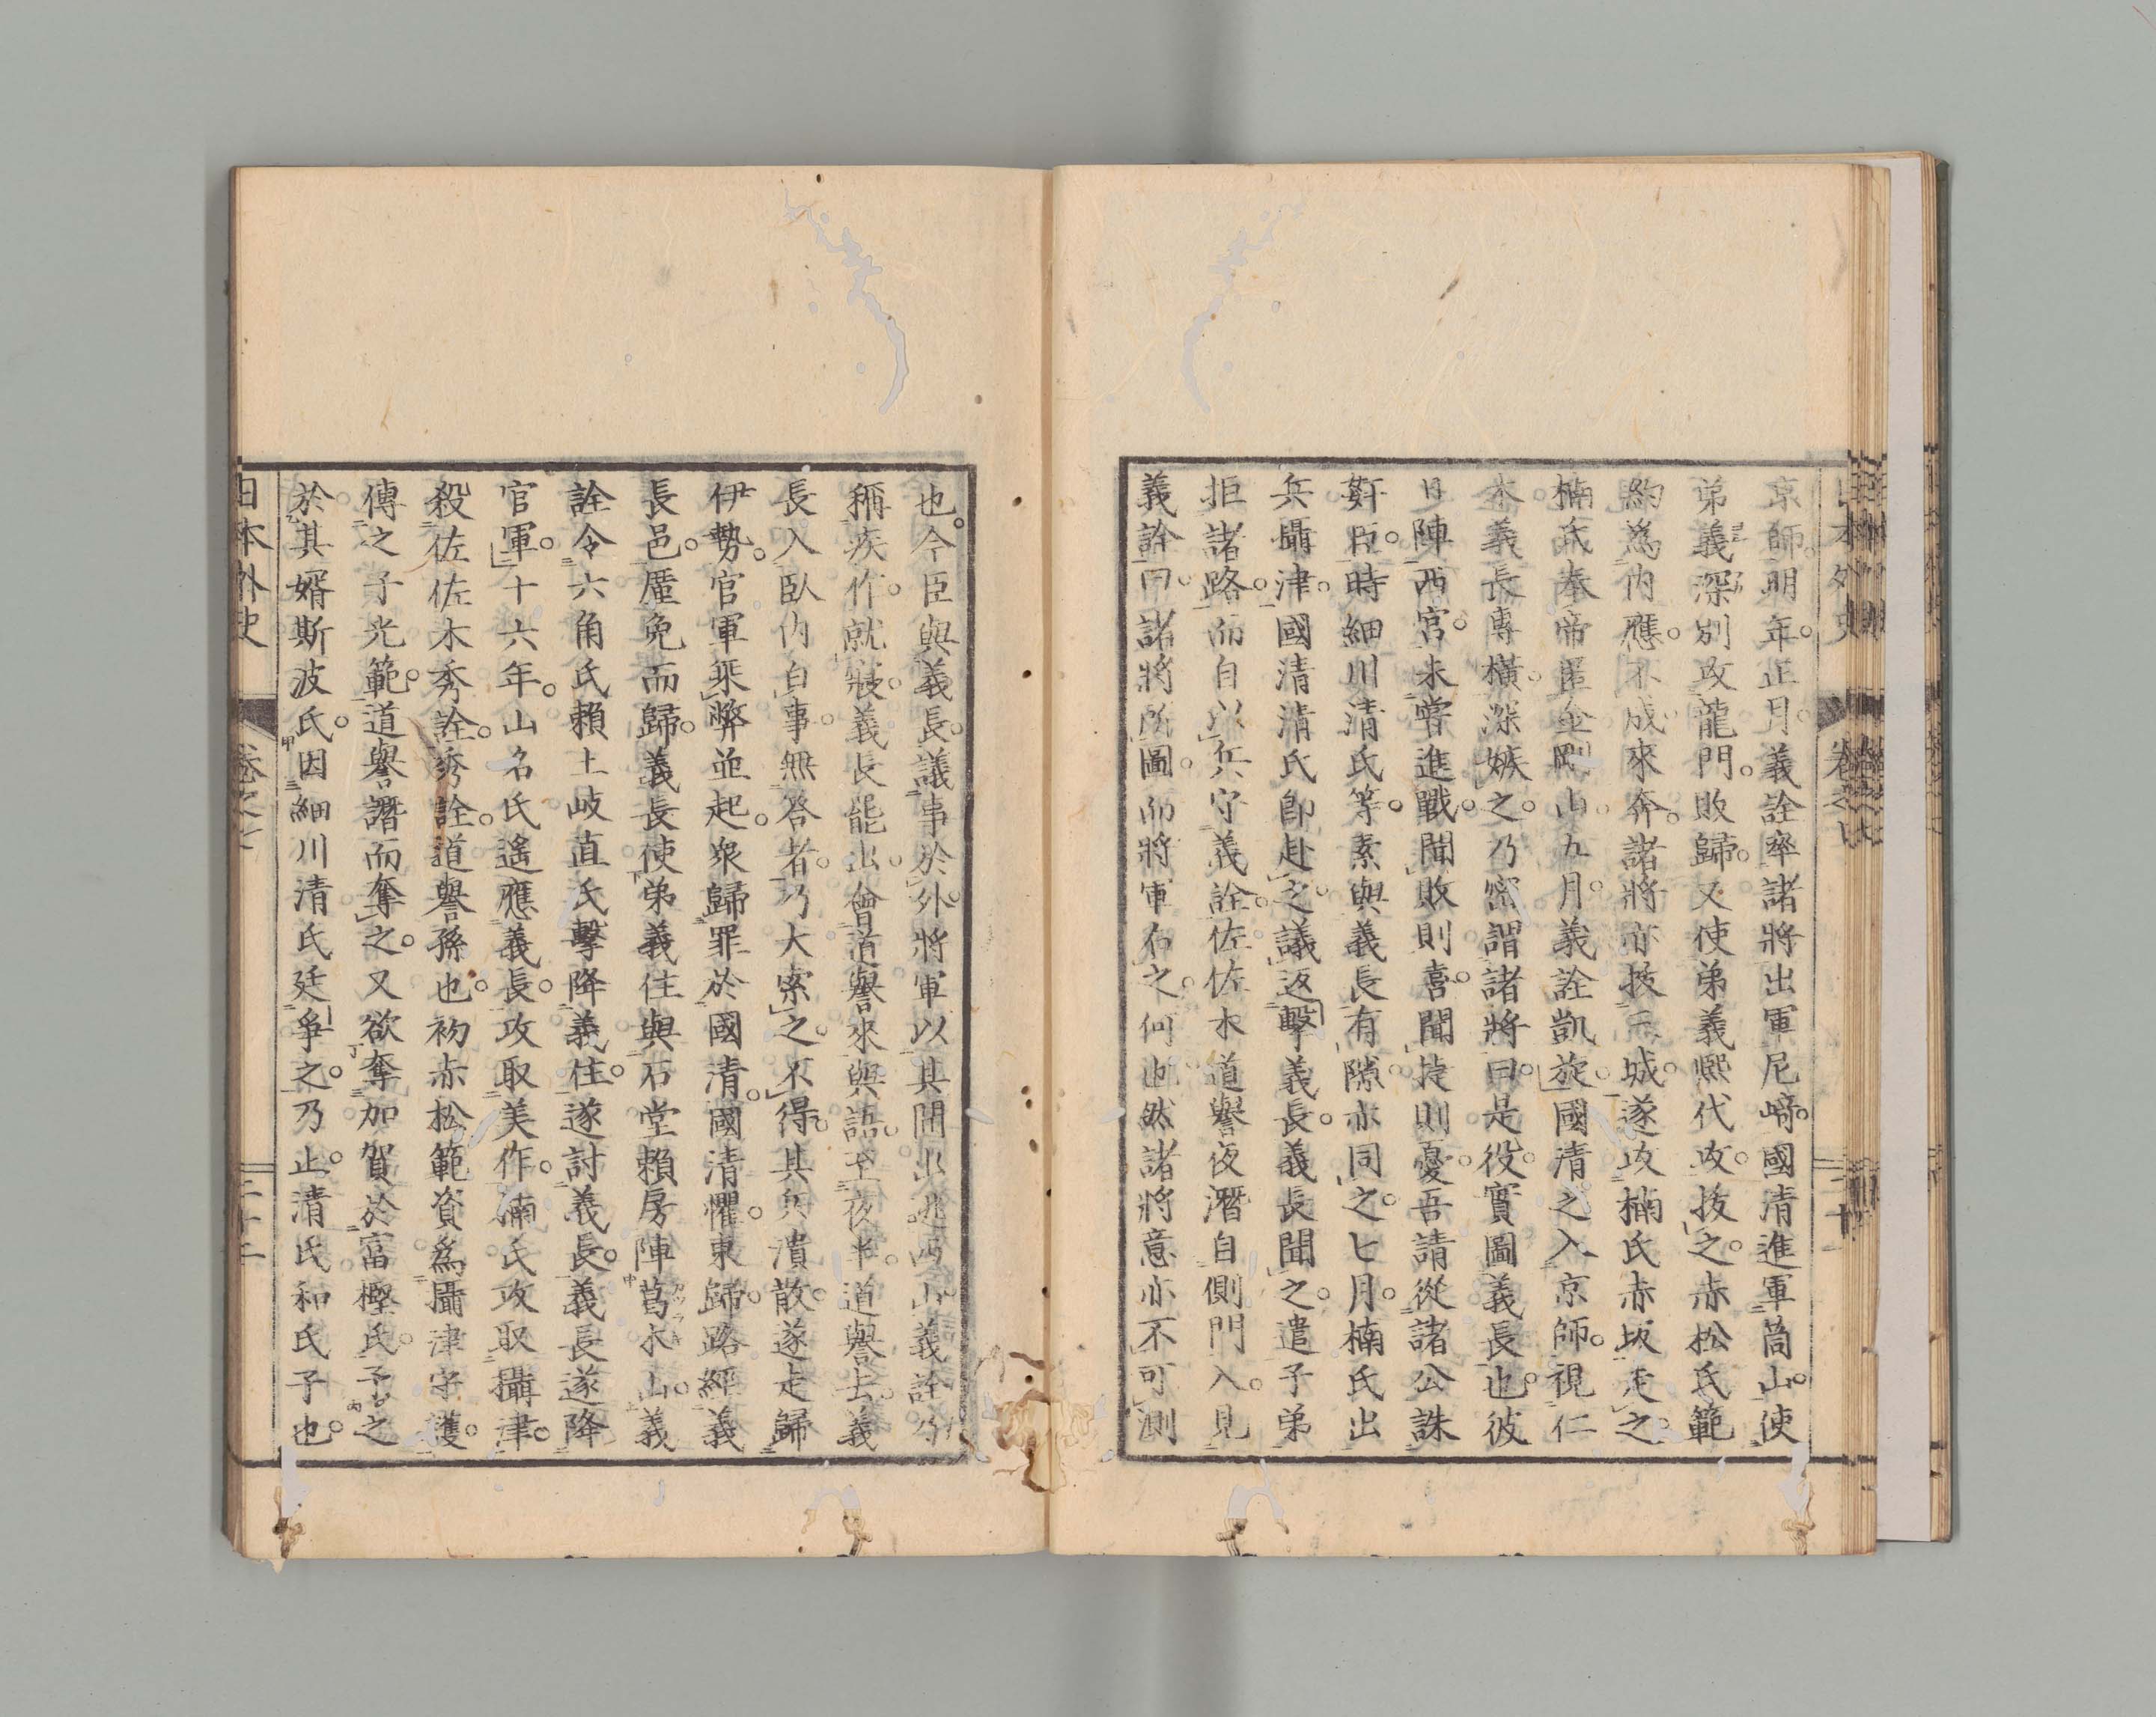 京師。明年。正月。義詮率諸將出軍尼﨑。國清進軍筒山。使
弟義深別攻龍門。敗歸。又使弟義熙代攻。拔之。赤松氏範
約為内應。不成來奔。諸將亦拔二城。遂攻楠氏赤坂走之。
楠氏奉帝匿金剛山。九月。義詮凱旋。國清之入京師。視仁
木義長專橫。深嫉之。乃密謂諸將曰。是役。實圖義長也。彼
日陣西宮。未嘗進戰。聞敗則喜。聞捷則憂。吾請從諸公誅
姧臣。時細川清氏等。素與義長有隙。亦同之。七月。楠氏出
兵攝津。國清清氏即赴之。議返擊義長。義長聞之。遣子弟
拒諸路。而自以兵守義詮。佐佐木道譽夜潛自側門入。見
義詮曰。諸將所圖。而將軍右之。何也。然諸將意亦不可測
也。今臣與義長。議事於外。將軍以其間出逃西山。義詮乃
稱疾作。就寢。義長能出會道譽來與語。至夜半。道譽去。義
長入臥内白事。無答者。乃大索之。不得。其兵潰散。遂走歸
伊勢。官軍乘弊並起。衆歸罪於國清。國清懼。東歸。路經義
長邑。厪免而歸。義長使弟義住與石堂賴房陣葛木山。義
詮令六角氏賴土岐直氏擊降義住。遂討義長。義長遂降
官軍。十六年。山名氏遙應義長。攻取美作。楠氏攻取攝津。
殺佐佐木秀詮。秀詮。道譽孫也。初赤松範資為攝津守護。
傳之子光範。道譽譖而奪之。又欲奪加賀於富樫氏。予之
於其婿斯波氏。因細川清氏廷爭之。乃止。清氏和氏子也。
日本外史 卷之七 二十二